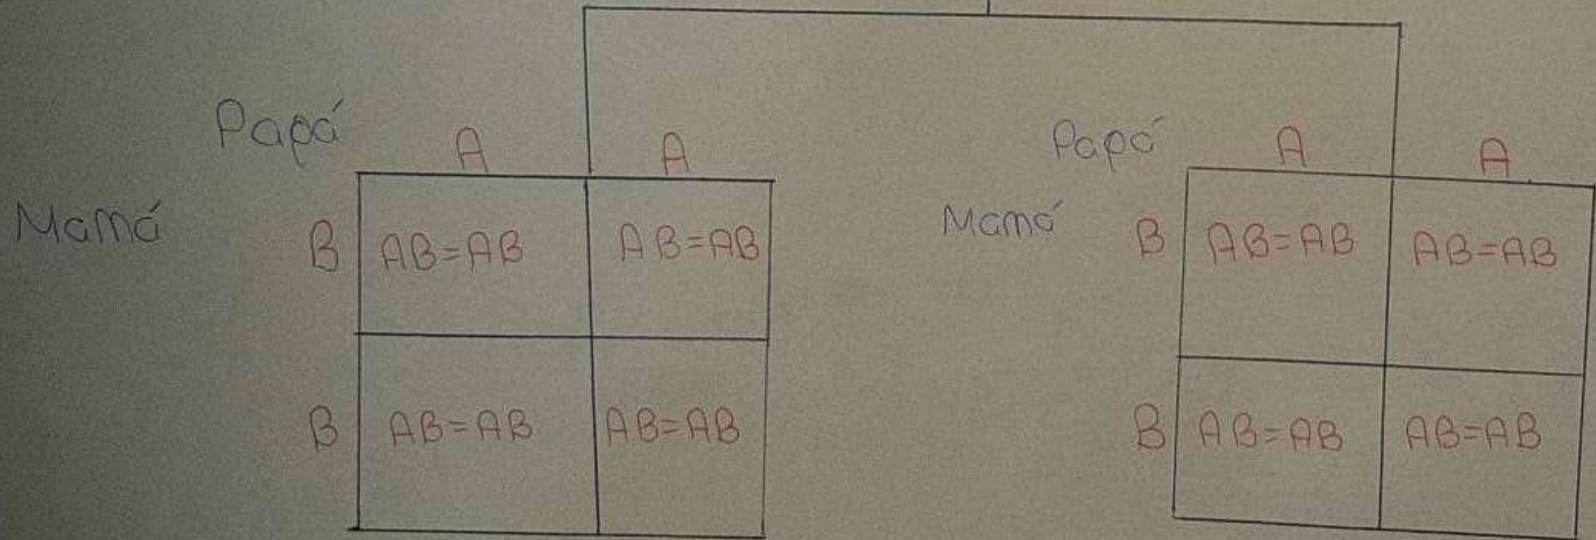 Papá A A
Mamá B AB=AB AB=AB
B AB=AB AB=AB
Papá A A
Mamá B AB=AB AB=AB
B AB=AB AB=AB